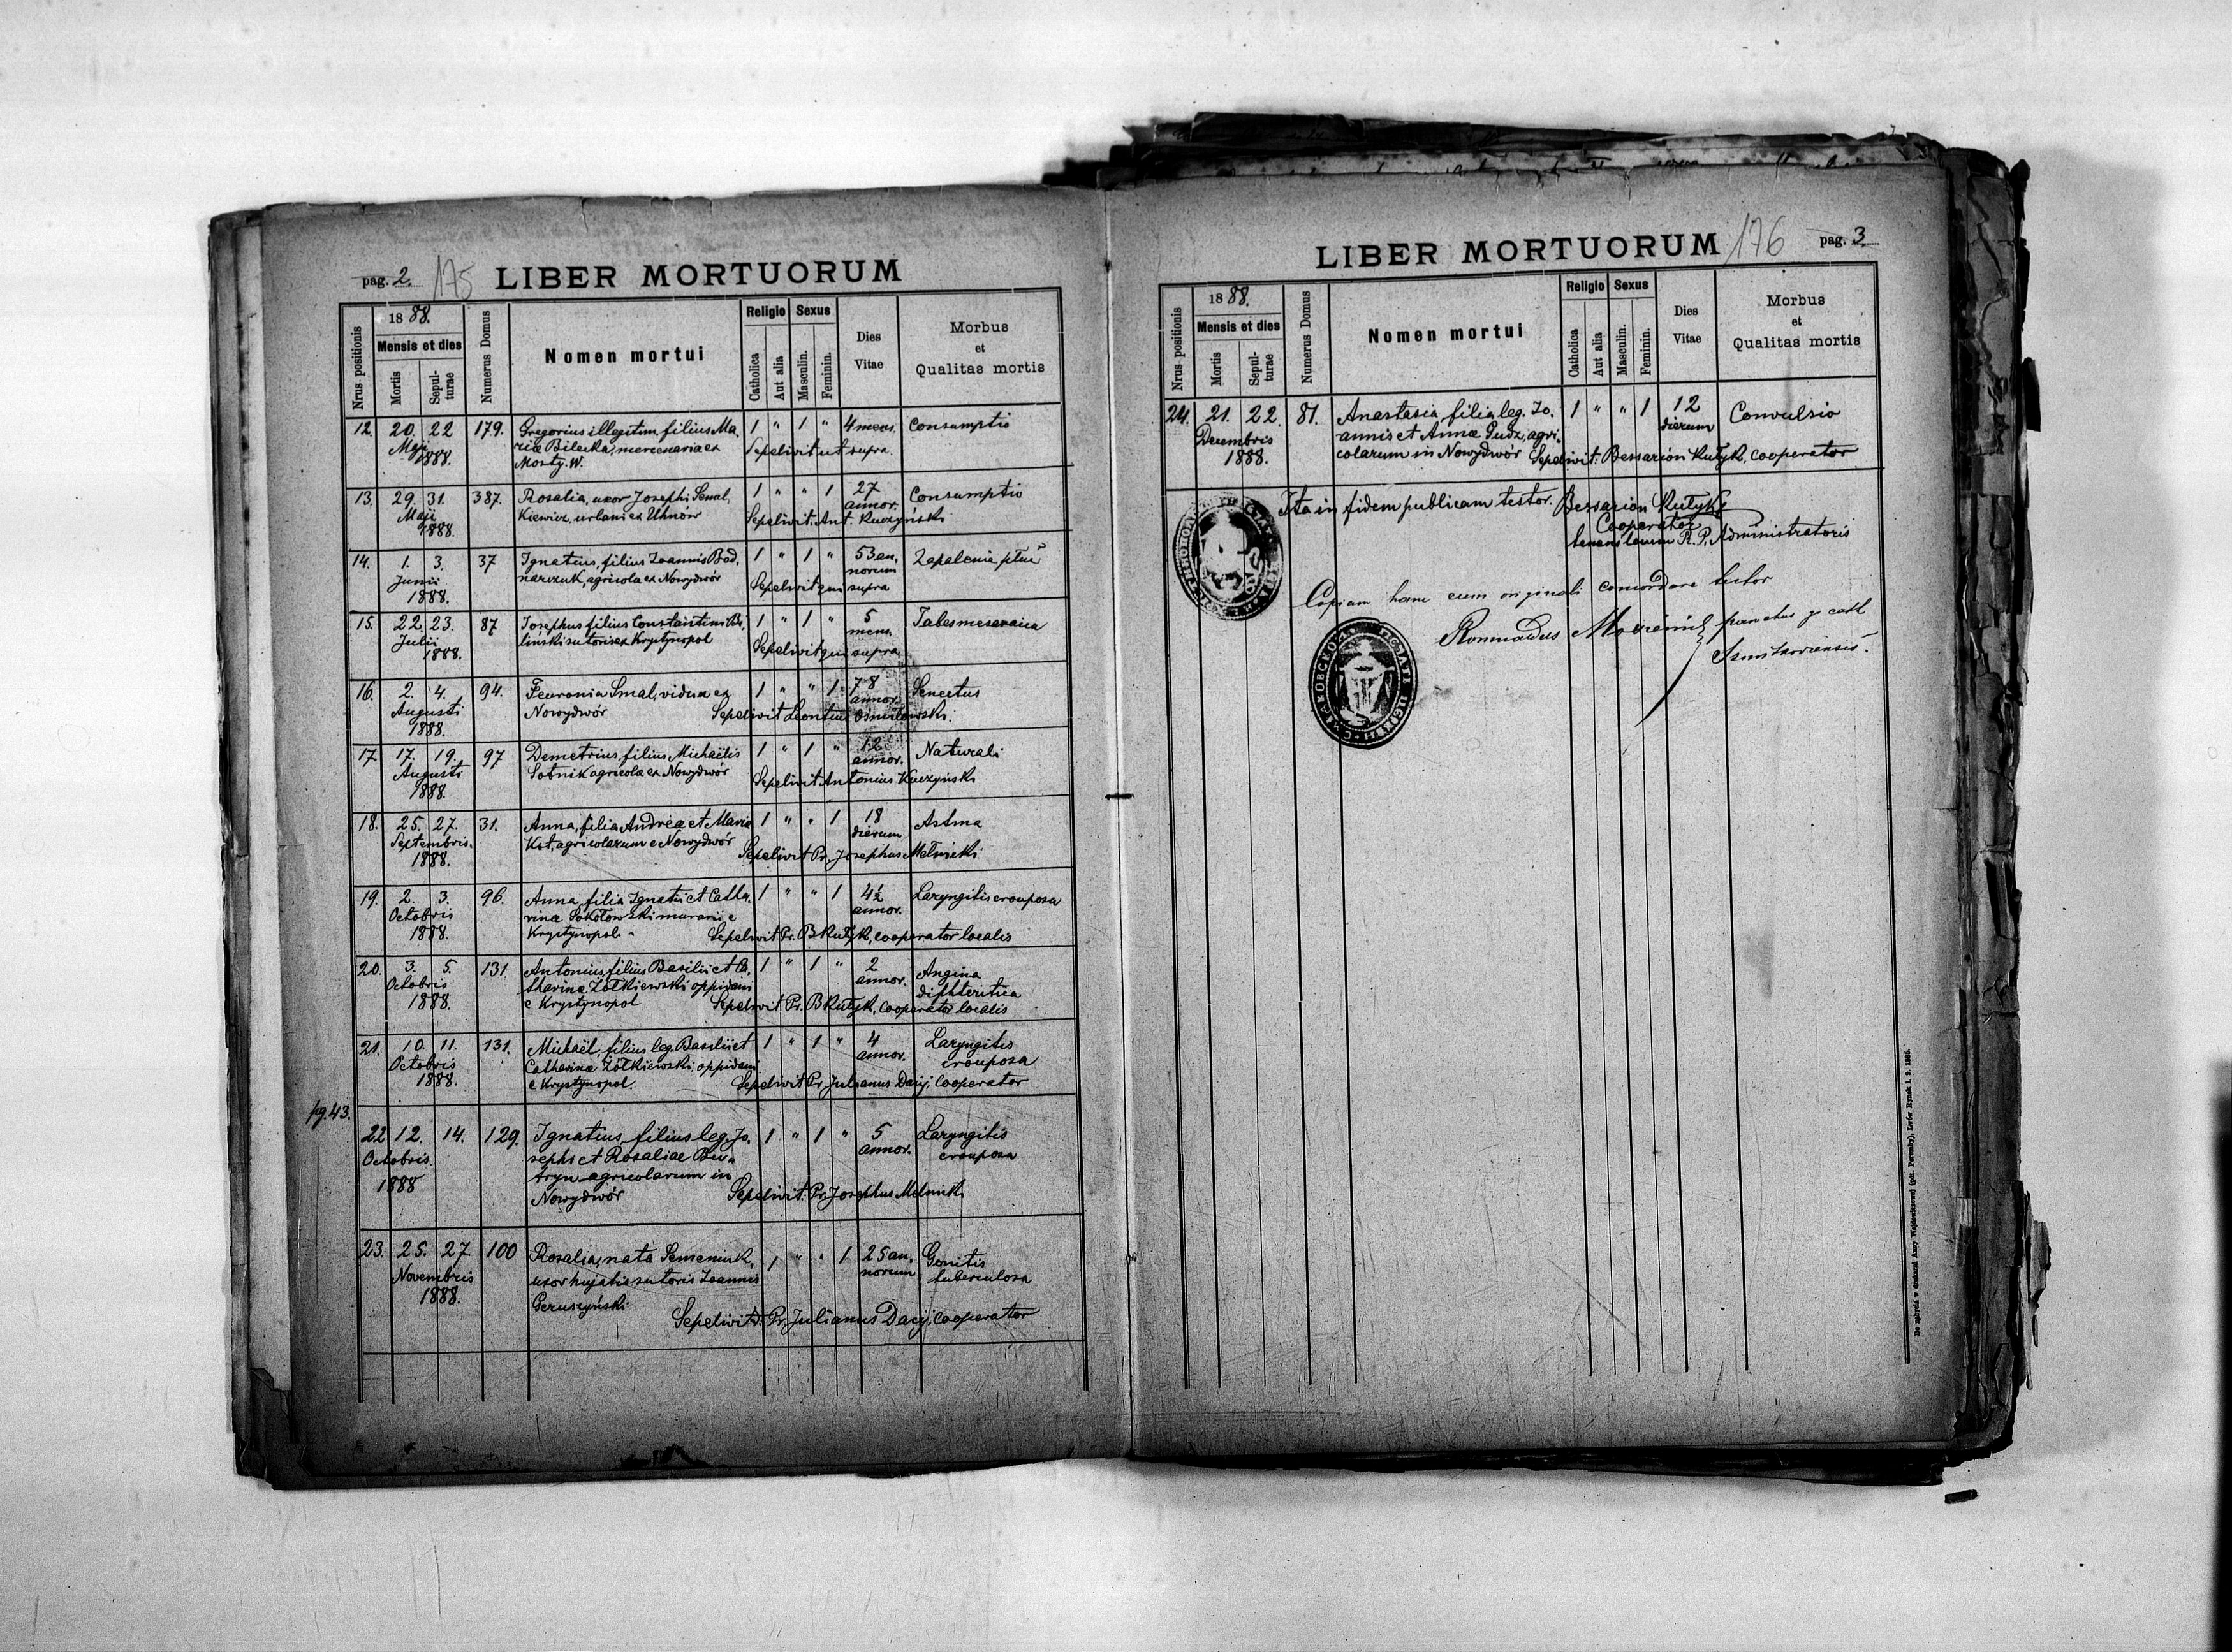 pag. 2. 175 LIBER MORTUORUM
Nrus positionis
1888.
Mensis et dies
Mortis
Sepulturae
Numerus Domus
Nomen mortui
Religio
Catholica
Aut alia
Sexus
Masculin.
Feminin.
Dies
Vitae
Morbus
et
Qualitas mortis
12. 20. 22 179. Gregorius illegitim. filius Ma, 1 " 1 " 4 mens. Consumptio
Maji riæ Bilecka, mercenaria ex Sepelivit ut supra.
1888. Mosty. W.
13. 29. 31. 387. Rosalia, uxor Josephi Semal, 1 " " 1 27 Consumptio
Maji kiewicz, urbani ex Uhnów annor.
1888. Sepelivit Ant. Kuczyński
14. 1. 3. 37 Ignatius, filius Joannis Bod, 1 " 1 " 53 an, Zapalenie płuc
Junii narczuk, agricola ex Nowydwór norum
1888. Sepelivit qui supra
15. 22. 23. 87 Josephus filius Constantini Be, 1 " 1 " 5 Tabes mesaraica
Julii liński sutoris ex Krystynopol mens.
1888. Sepelivit qui supra
16. 2. 4. 94. Fevronia Smal, vidua ex 1 " " 1 78 Senectus
Augusti Nowydwór annor.
1888. Sepelivit Leontius Osmiłowski.
17 17. 19. 97 Demetrius, filius Michaëlis 1 " 1 " 12 Naturali
Augusti Sotnik agricolæ ex Nowydwór annor.
1888. Sepelivit Antonius Kuczyński
18. 25. 27. 31. Anna, filia Andreæ et Mariæ 1 " " 1 18 Astma
Septembris. Kot, agricolarum e Nowydwór dierum
1888. Sepelivit Pr. Josephus Melnicki
19. 2. 3. 96. Anna, filia Ignatii et Catha, 1 " " 1 4½ Laryngitis crouposa
Octobris rinæ Sokołowski murarii e annor.
1888. Krystynopol Sepelivit Pr. B Kutyk, cooperator localis
20. 3. 5. 131. Antonius, filius Basilii et Ca, 1 " 1 " 2 Angina
Octobris tharinæ Żółkiewski oppidani annor. diphteritica
1888. e Krystynopol Sepelivit Pr. B Kutyk, cooperator localis
21. 10. 11. 131. Michaël, filius leg. Basilii et 1 " 1 " 4 Laryngitis
Octobris Catharinæ Żółkiewski oppidani annor. crouposa
1888. e Krystynopol. Sepelivit Pr. Julianus Dacij, Cooperator
pg. 43.
22 12. 14. 129. Ignatius, filius leg. Jo, 1 " 1 " 5 Laryngitis
Octobris. sephi et Rosaliae annor. crouposa
1888 agricolarum in
Nowydwór Sepelivit. Pr. Josephus Melnicki
23. 25. 27. 100 Rosalia, nata Semeniuk, 1 " " 1 25 an, Gonitis
Novembris uxor hujatis sutoris Joannis norum tuberculosa
1888. Geruszyński
Sepelivit. Pr. Julianus Dacij, Cooperator
LIBER MORTUORUM 176 pag. 3
Nrus positionis
1888.
Mensis et dies
Mortis
Sepulturae
Numerus Domus
Nomen mortui
Religio
Catholica
Aut alia
Sexus
Masculin.
Feminin.
Dies
Vitae
Morbus
et
Qualitas mortis
24. 21. 22. 81. Anastasia, filia leg. Jo. 1 " " 1 12 Convulsio
Decembris annis et Annæ Gudz, agri, dierum
1888. colarum in Nowydwór Sepelivit: Bessarion Kutyk, cooperator
Ita in fidem publicam testor. Bessarion Kutyk
Cooperator
R. P. Administratoris
Copiam hanc cum originali concordare testor
Romualdus parochus gr cath